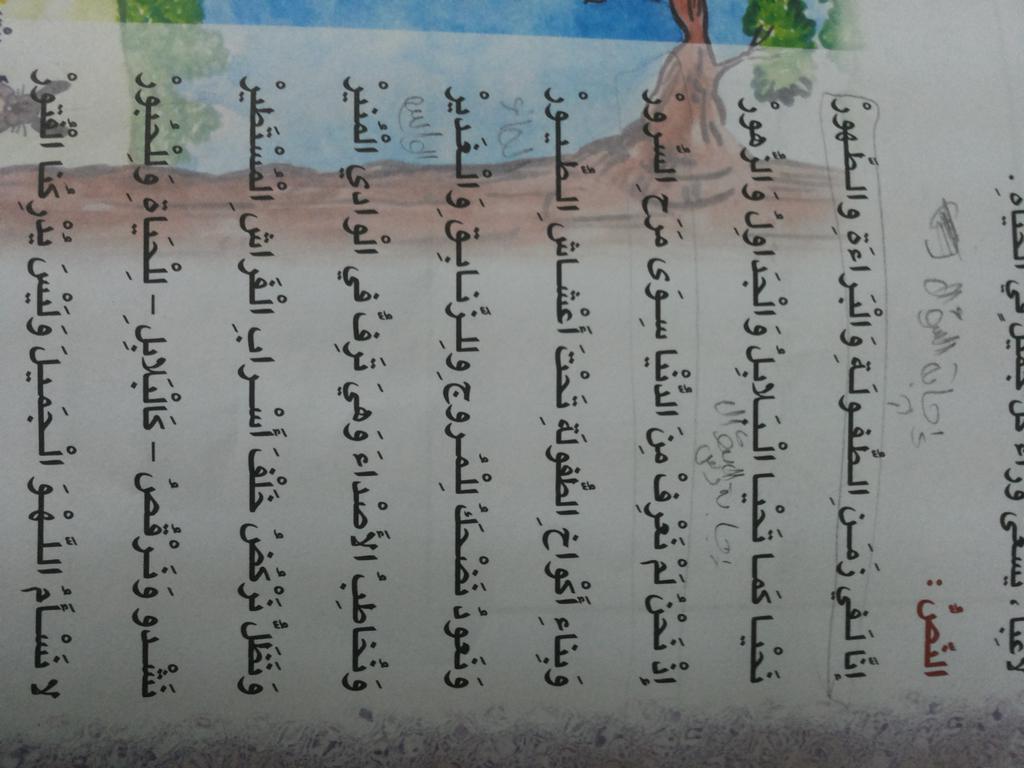 لاعباء، يسعى وراء كل جميل في الحياه.
النَّصُّ :
إجابة السؤال
إِنَّا لَفي زَمَنِ الطُّفولَةِ وَالْبَراءَةِ وَالطَّهورْ
نَحْيا كَما تَحْيا الْبَلابِلُ وَالْجَداوِلُ وَالزُّهورْ
إجابة السؤال
إِذْ نَحْنُ لَمْ نَعْرِفْ مِنَ الدُّنْيا سِوَى مَرَحِ السُّرورْ
وَبِناءِ أَكْواخِ الطُّفولَةِ تَحْتَ أَعْشاشِ الطُّيورْ
وَنَعودُ نَضْحَكُ لِلْمُروجِ وَلِلزَّنابِقِ وَالْغَديرْ
وَنُخاطِبُ الأَصْداءَ وَهيَ تَرِفُّ في الْوادي الْمُنيرْ
وَنَظَلُّ نَرْكُضُ خَلْفَ أَسْرابِ الْفَراشِ الْمُسْتَطيرْ
نَشْدو وَنَرْقُصُ - كَالْبَلابِلِ - لِلْحَياةِ وَلِلْحُبورْ
لا نَسْأَمُ اللَّهْوَ الْجَميلَ وَلَيْسَ يُدْرِكُنا الْفُتورْ